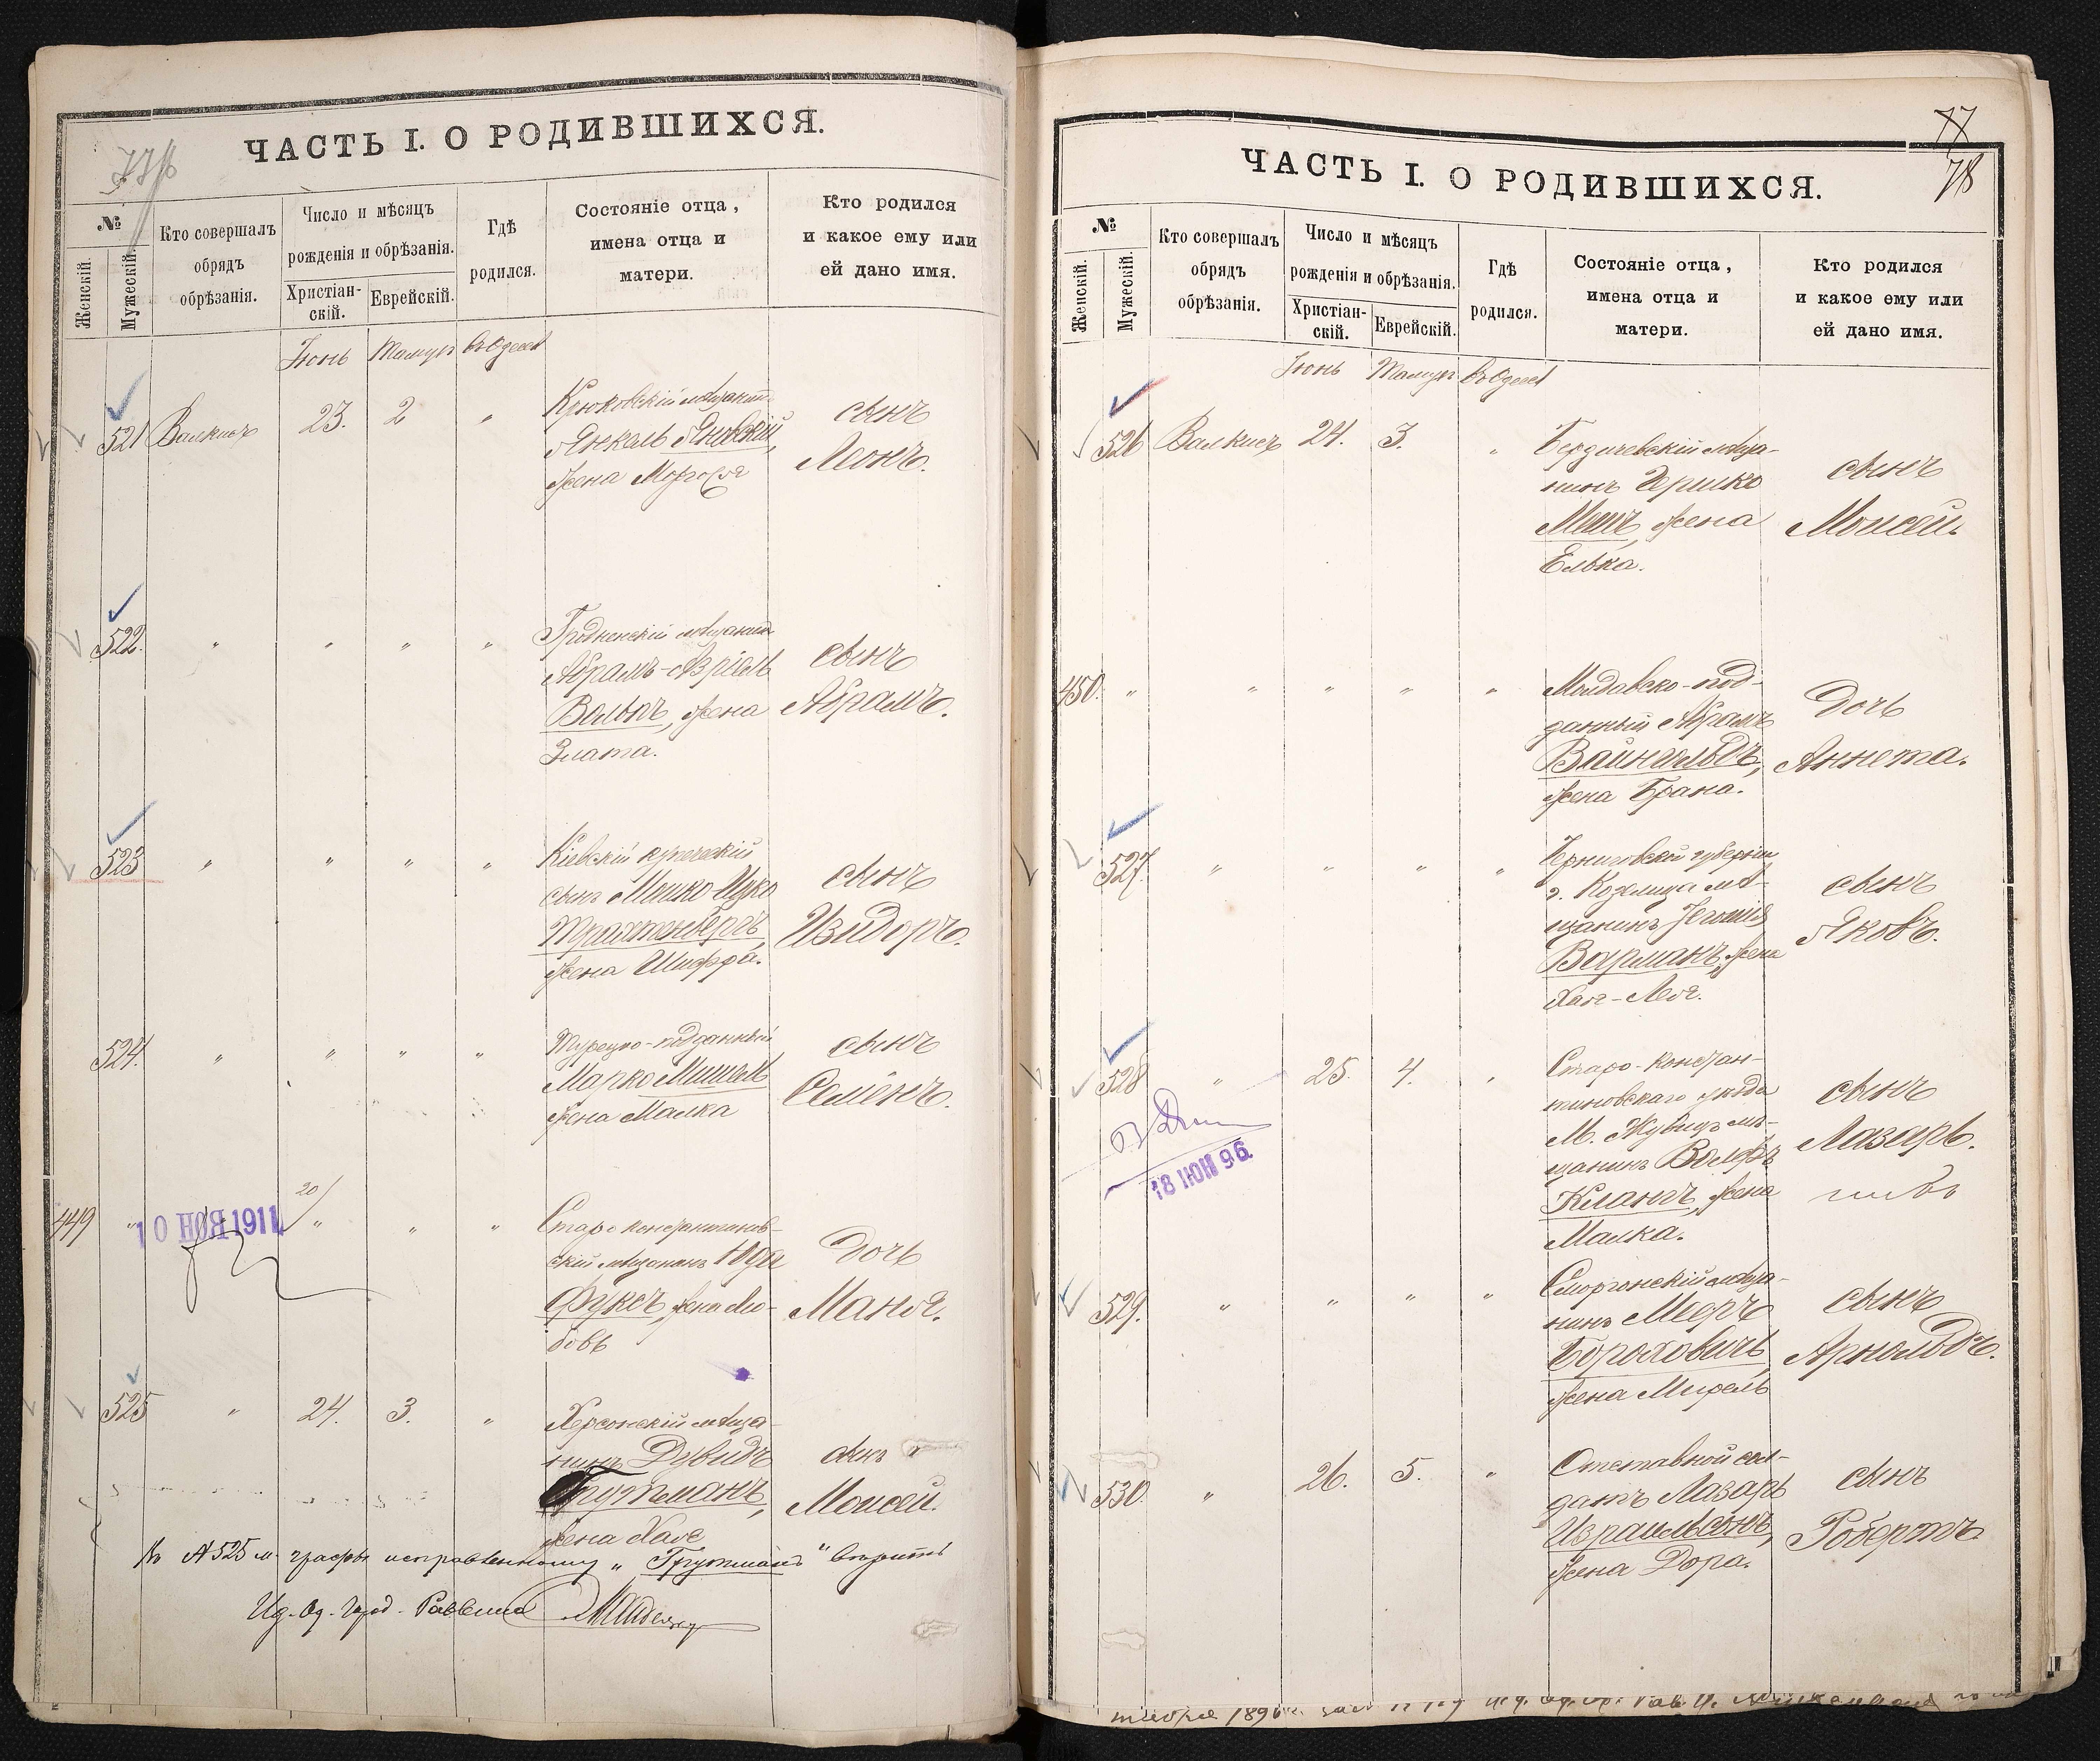 ЧАСТЬ I. О РОДИВШИХСЯ.
№
Женскій.
Мужескій.
Кто совершалъ
обрядъ
обрѣзанія.
Число и мѣсяцъ
рожденія и обрѣзанія.
Христіан-
скій.
Еврейскій.
Гдѣ
родился.
Состояніе отца,
имена отца и
матери.
Кто родился
и какое ему или
ей дано имя.
Іюнь Тамузъ въ Одессѣ
521 Валкисъ 23. 2 "
Крюковскій мѣщанинъ
Янкель Яновскій,
жена
сынъ
Леонъ.
522. " " " "
Гродненскій мѣщанинъ
Абрамъ-Азріель
Вольпъ, жена
Злата.
сынъ
Абрамъ.
523 " " " "
Кіевскій купеческій
сынъ Мошко-Ицко
Трахтенбергъ,
жена Шифра.
сынъ
Изидоръ.
524. " " " "
Турецко-подданный
Марко Мишель
жена Малка
сынъ
Семёнъ.
449 " " " " "
10 НОЯ 1911
20/
Староконстантинов-
скій мѣщанинъ Юда
Фуксъ, жена Лю-
бовь
дочь
Маня.
525 " 24. 3. "
Херсонскій мѣща-
нинъ Дувидъ
Грутманъ,
жена Хая
сынъ
Моисей.
Въ № 525 м. графы исправленному "Грутманъ" вѣрить
Ид. Од. Город. Раввина
77
78
ЧАСТЬ I. О РОДИВШИХСЯ.
№
Женскій.
Мужескій.
Кто совершалъ
обрядъ
обрѣзанія.
Число и мѣсяцъ
рожденія и обрѣзанія.
Христіан-
скій.
Еврейскій.
Гдѣ
родился.
Состояніе отца,
имена отца и
матери.
Кто родился
и какое ему или
ей дано имя.
Іюнь Тамузъ въ Одессѣ
526 Валкисъ 24. 3. "
Бердичевскій мѣща-
нинъ Гершко
жена
Елька.
сынъ
Моисей.
450. " " " " "
Молдавско-под-
данный Абрамъ
Вайнгольдъ,
жена Брана.
дочь
Аннета.
527. " " " "
Черниговской губерніи
г. Козельца мѣ-
щанинъ
Варшанъ, жена
Хая-Лея.
сынъ
Яковъ.
528 " 25. 4. "
18 ІЮН 96
Старо-Констан-
тиновскаго уѣзда
м. мѣ-
щанинъ Вольфъ
жена
Малка.
сынъ
Лазарь.
529. " " " "
Сморгонскій мѣща-
нинъ Мееръ
Бороховичъ,
жена Мирель
сынъ
Арнольдъ.
530. " 26. 5. "
Отставной сол-
датъ Лазарь
Израильсонъ,
жена Дора.
сынъ
Робертъ.